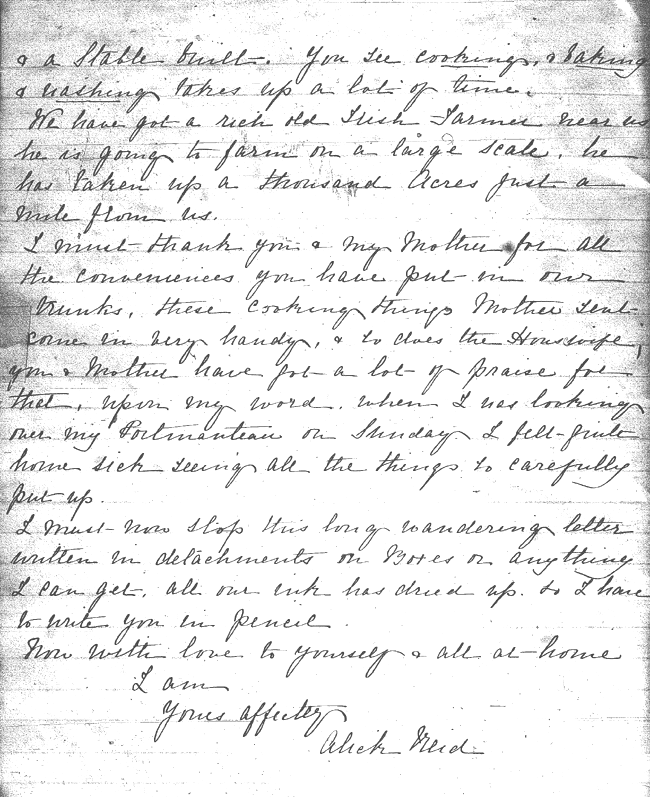 & a Stable built. You see cooking, & baking
& washing takes up a lot of time.
We have got a rich old Irish Farmer near us
he is going to farm on a large scale, he
has taken up a thousand Acres just a
mile from us.
I must thank you & my Mother for all
the conveniences you have put in our
trunks, these cooking things Mother sent
come in very handy, & so does the Housewife,
you & Mother have got a lot of praise for
that, upon my word, when I was looking
over my Portmanteau on Sunday I felt quite
home sick seeing all the things so carefully
put up.
I must now stop this long wandering letter
written in detachments on Boxes or anything
I can get, all our ink has dried up. so I have
to write you in pencil.
Now with love to yourself & all at home
I am
Yours affectly
Alick Reid